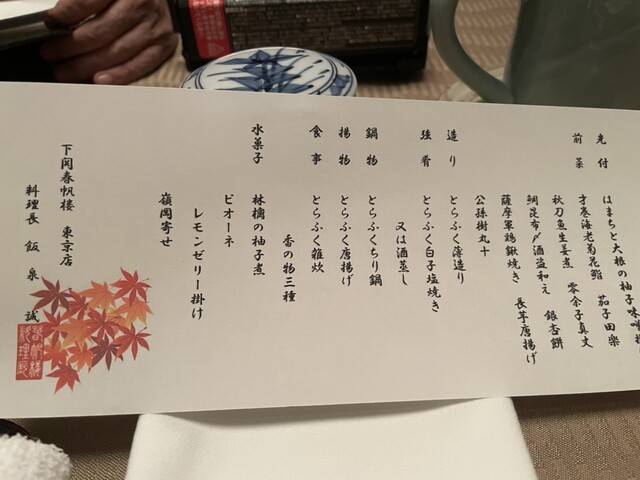 先付
はまちと大根の柚子味噌
前菜
才巻海老菊花鮨 茄子田楽
秋刀魚生姜煮 零余子真丈
鯛昆布〆酒盗和え 銀杏餅
薩摩軍鶏鍬焼き 長芋唐揚げ
公孫樹丸十
造り
とらふく薄造り
強肴
とらふく白子塩焼き
又は酒蒸し
鍋物
とらふくちり鍋
揚物
とらふく唐揚げ
食事
とらふく雑炊
香の物三種
水菓子
林檎の柚子煮
ピオーネ
レモンゼリー掛け
嶺岡寄せ
下関春帆楼 東京店
料理長 飯泉 誠